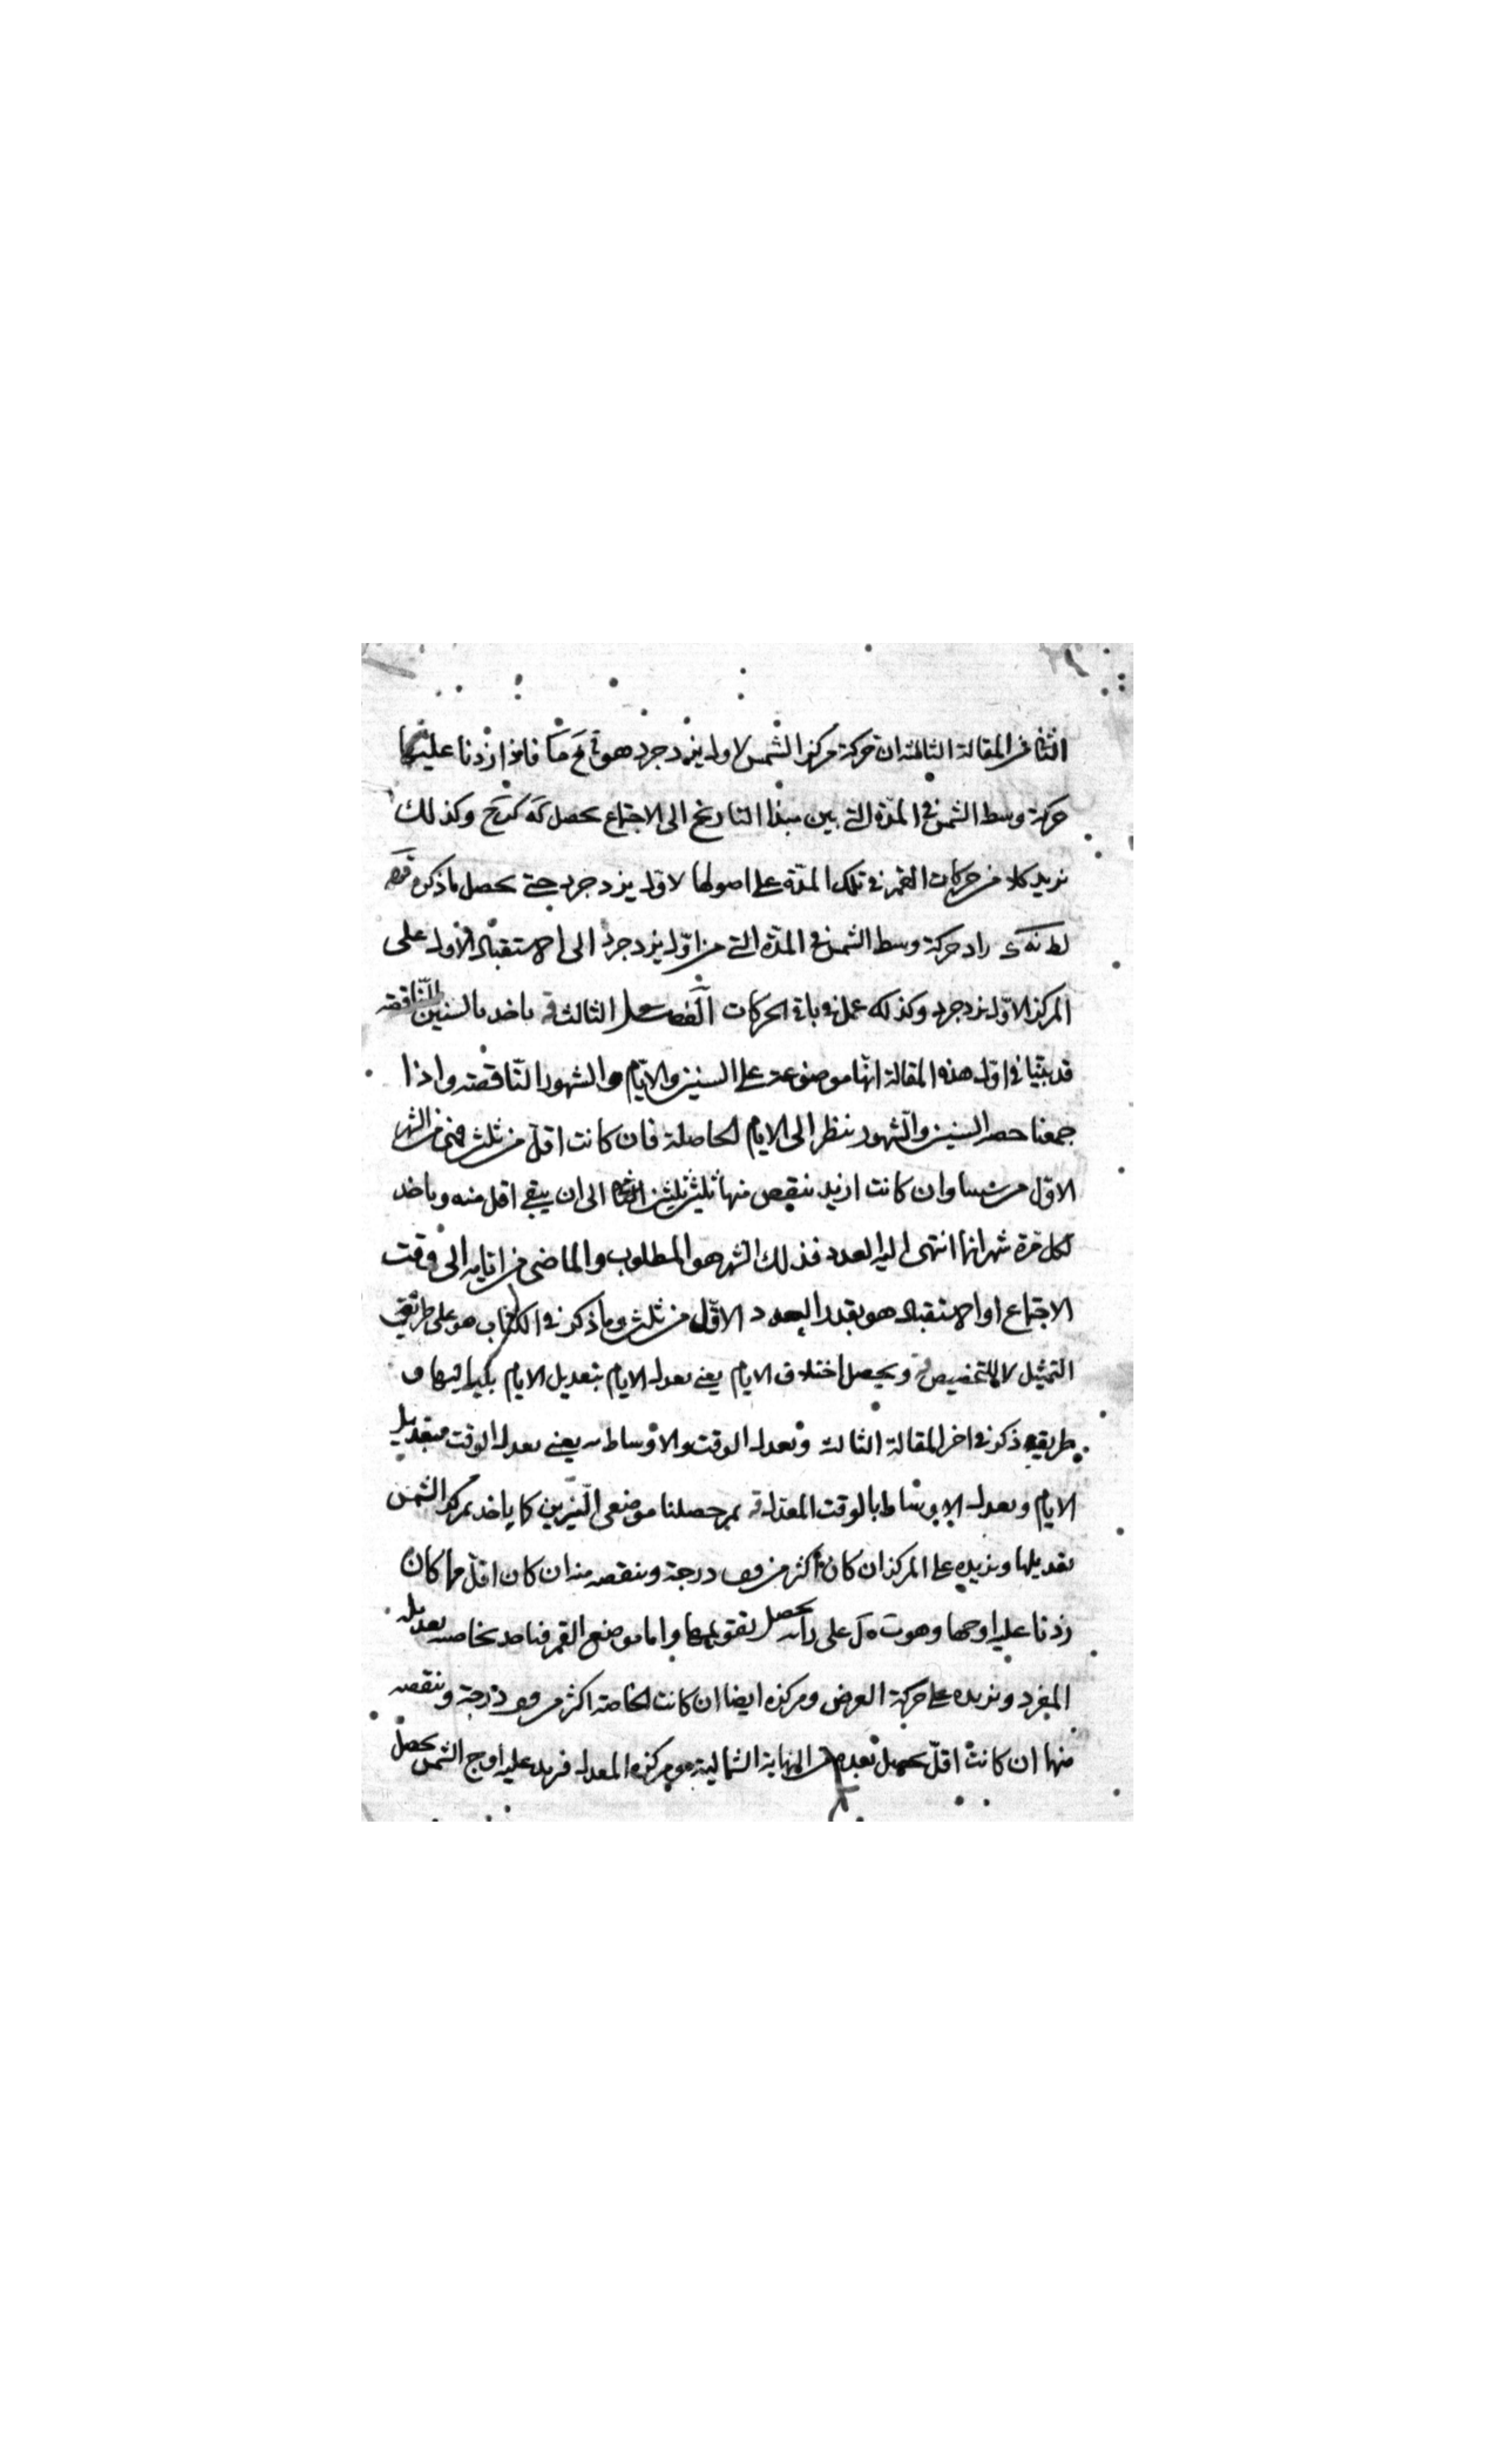 الثانى من المقالة الثالثة ان حركة مركز الشمس لاول يزدجرد هو فاذا زدنا عليها
حركة وسط الشمس فى المدة التى بين مبدا التاريخ الى الاجتماع يحصل وكذلك
نزيد كلا من حركات القمر فى تلك المدة على اصولها لاول يزدجرد حتى يحصل ماذكره
زاد حركة وسط الشمس فى المدة التى من اول يزدجرد الى الاستقبال الاول على
المركز الاول يزدجرد وكذلك عمل فى باقى الحركات الفصل الثالث ناخذ بالسنين الناقصه
قد بينا فى اول هذه المقالة انها موضوعة على السنين والايام والشهور الناقصة واذا
جمعنا حصر السنين والشهور ننظر الى الايام الحاصلة فان كانت اقل من ثلثين فمن الشهر
الاول وان كانت ازيد ننقص منها ثلثين ثلثين الى ان يبقى اقل منه وياخذ
لكل مرة شهرا فما انتهى اليه العدد فذلك الشهر هو المطلوب والماضى من ايامه الى وقت
الاجتماع او الاستقبال هو بقدر العدد الاقل من ثلثين وما ذكر فى الكتاب هو على طريق
التمثيل لا للتخصيص ويحصل اختلاف الايام يعنى تعدل الايام بتعديل الايام
طريقه ذكر فى اخر المقالة الثالثة وتعدل الوقت والاوساط يعنى تعدل الوقت بتعديل
الايام وتعدل الاوساط بالوقت المعدل حصلنا موضعى النيرين كا ياخذ بمركز الشمس
تعديلها ونزيده على المركز ان كان اكثر من درجة وننقصه منه ان كان اقل فما كان
زدنا عليه اوجها وهو على يحصل تقويمها واما موضع القمر فناخذ بخاصته تعديله
المفرد ونزيده على حركة العرض ومركزه ايضا ان كانت الخاصة اكثر من درجة وننقصه
منها ان كانت اقل يحصل بعده من النهاية الشمالية ومركزه المعدل فنزيد عليه اوج الشمس يحصل